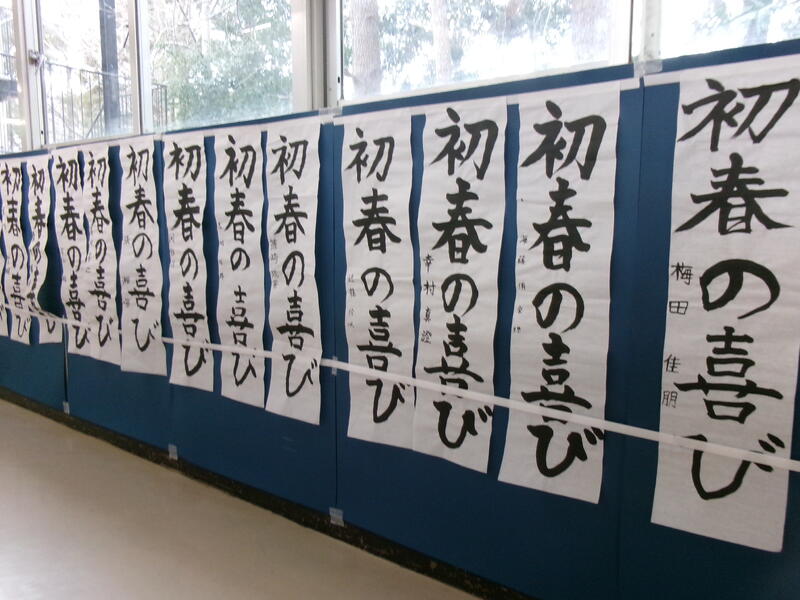 初春の喜び
梅田 佳朋
初春の喜び
初春の喜び
幸村 真
初春の喜び
初春の喜び
初春の喜び
初春の喜び
初春の喜び
初春の喜び
初春の喜び
初春の喜び
初春の喜び